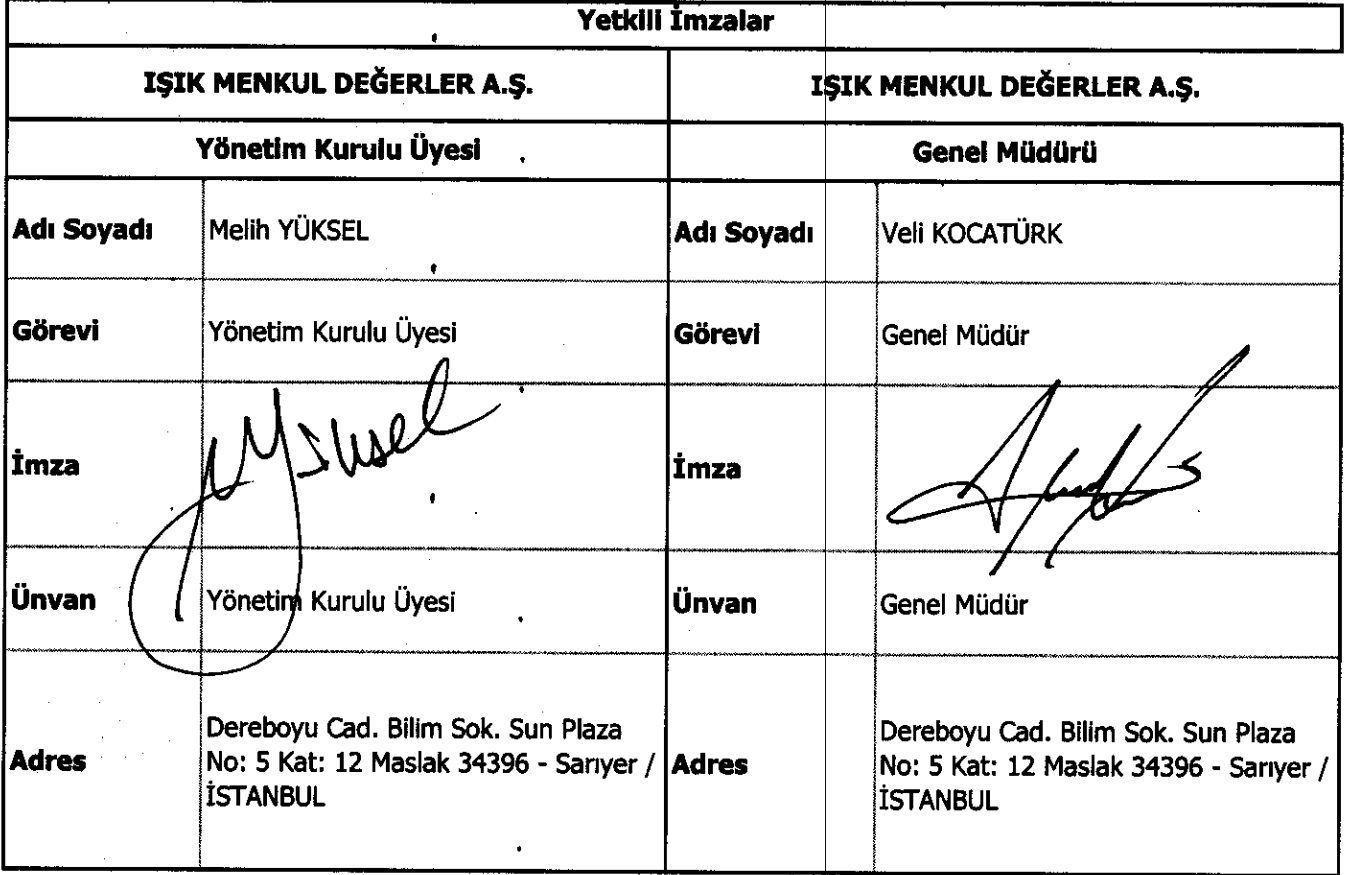 Yetkili İmzalar
IŞIK MENKUL DEĞERLER A.Ş.
IŞIK MENKUL DEĞERLER A.Ş.
Yönetim Kurulu Üyesi
Genel Müdürü
Adı Soyadı Melih YÜKSEL
Adı Soyadı Veli KOCATÜRK
Görevi Yönetim Kurulu Üyesi
Görevi Genel Müdür
İmza MYüksel
İmza
Ünvan Yönetim Kurulu Üyesi
Ünvan Genel Müdür
Adres
Dereboyu Cad. Bilim Sok. Sun Plaza
No: 5 Kat: 12 Maslak 34396 - Sarıyer /
İSTANBUL
Adres
Dereboyu Cad. Bilim Sok. Sun Plaza
No: 5 Kat: 12 Maslak 34396 - Sarıyer /
İSTANBUL